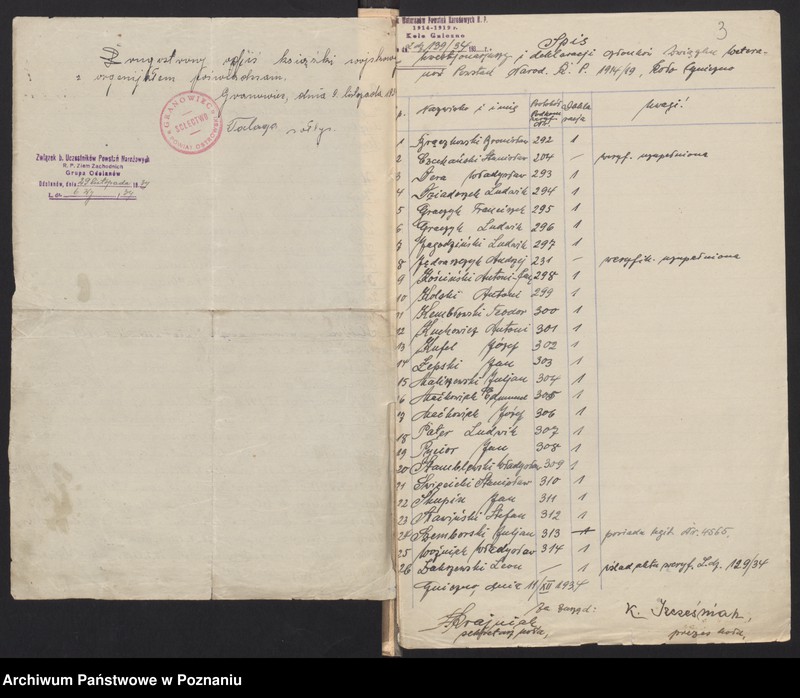 Dwustronny odpis książki wojskowej
z oryginałem poświadczam.
Granowiec, dnia 9. listopada 193
GRANOWIEC
SOŁECTWO
POWIAT OSTROWSKI
Talaga sołtys.
Związek b. Uczestników Powstań Narodowych
R. P. Ziem Zachodnich
Grupa Odolanów
Odolanów, dnia 29 listopada 1934
L. dz.
Weteranów Powstań Narodowych R. P.
1914-1919 r.
Koło Gniezno
139/34
3
Spis
i deklaracji członków Związku Wetera-
nów Powstań Narod. R. P. 1914/19, Koło Gniezno
Nazwisko i imię Dekla racja Uwagi!
1 Bronisław 292 1
2 Czechański Stanisław 204 — weryf. uzupełniona
3 Dera Władysław 293 1
4 Dziadoszek Ludwik 294 1
5 Graczyk Franciszek 295 1
6 Graczyk Ludwik 296 1
7 Jagodziński Ludwik 297 1
8 Jędraszczyk Andrzej 231 — weryfik. uzupełniona
9 Kościński Antoni 298 1
10 Kolski Antoni 299 1
11 Kembłowski Teodor 300 1
12 Kuchowicz Antoni 301 1
13 Kufel Józef 302 1
14 Łepski Jan 303 1
15 Maliszewski Juljan 304 1
16 Maćkowiak Edmund 305 1
17 Maćkowiak Józef 306 1
18 Pater Ludwik 307 1
19 Pycior Jan 308 1
20 Stamblewski Władysław 309 1
21 Święcicki Stanisław 310 1
22 Skupin Jan 311 1
23 Stawiński Stefan 312 1
24 Szemborski Juljan 313 1 posiada legit. Nr. 4565.
25 Woźniak Władysław 314 1
26 Zakrzewski Leon — 1 wkład aktu weryf. L.dz. 129/34
Gniezno, dnia 11/XII 1934
Za zarząd:
Krajniak
sekretarz koła,
K.
prezes koła,
Archiwum Państwowe w Poznaniu